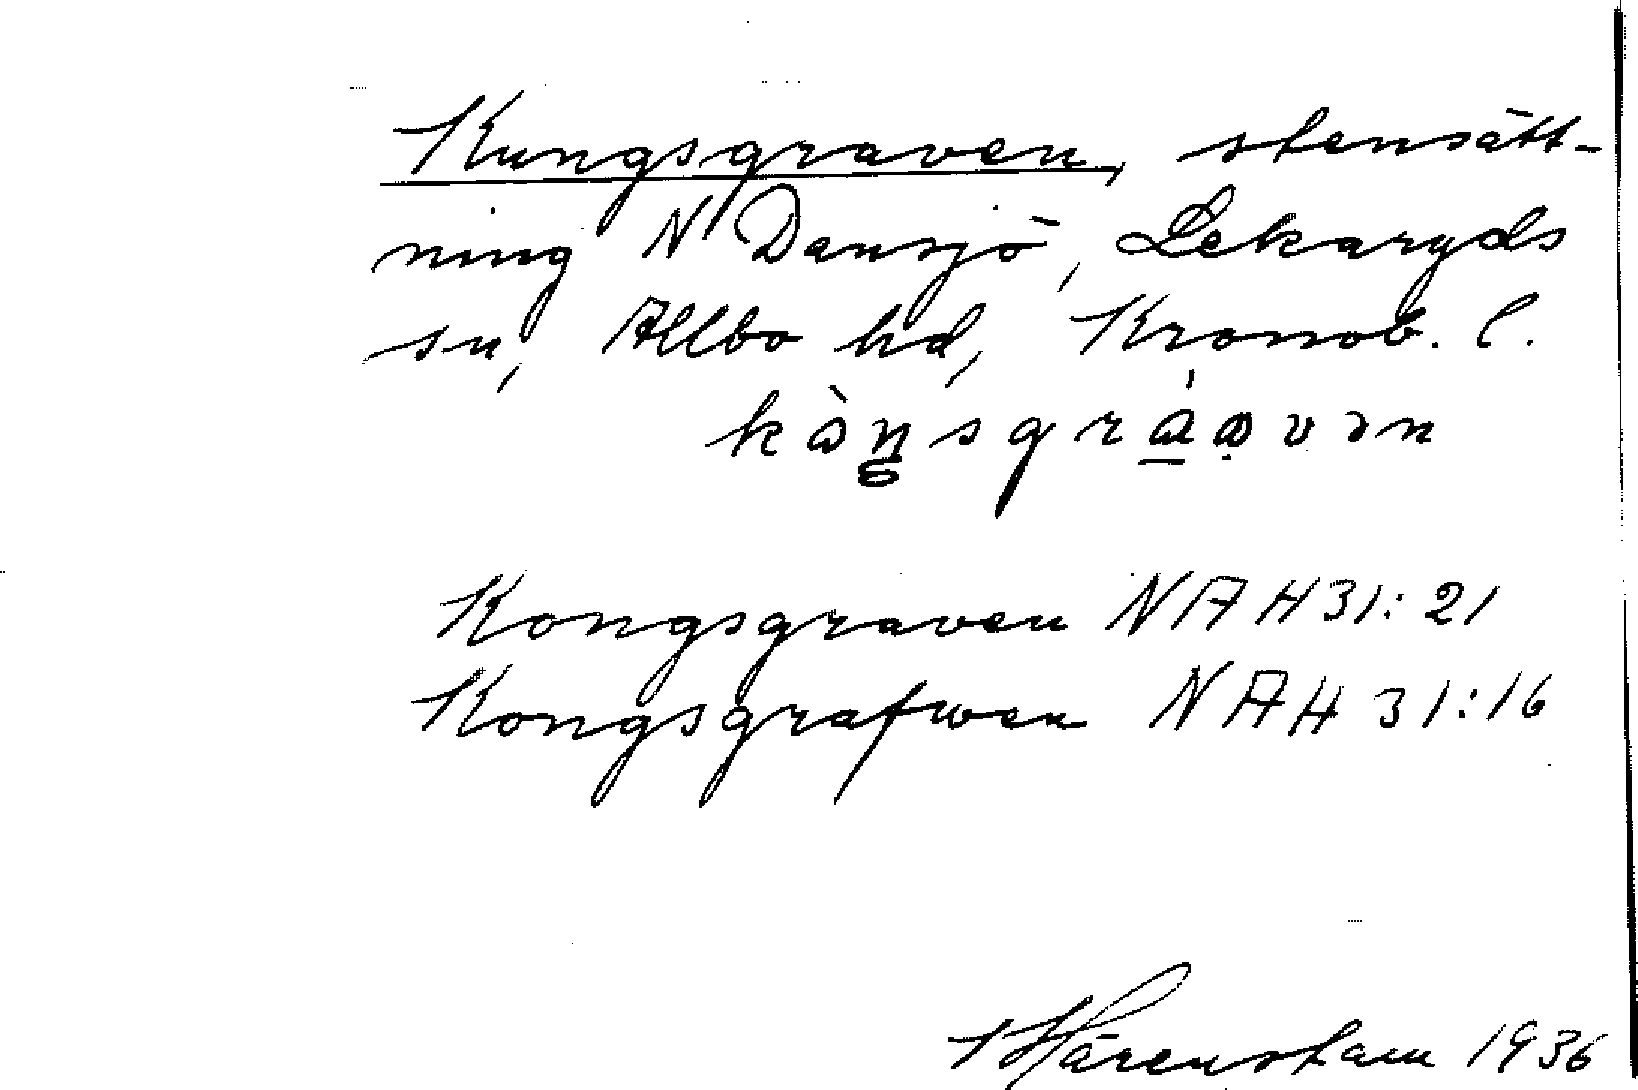 Kungsgraven, stensätt-
ning N Dansjö, Lekaryds
sn, Allbo hd, Kronob. l.
Kongsgraven NAH 31:21
Kongsgrafwen NAH 31:16
Härenstam 1936